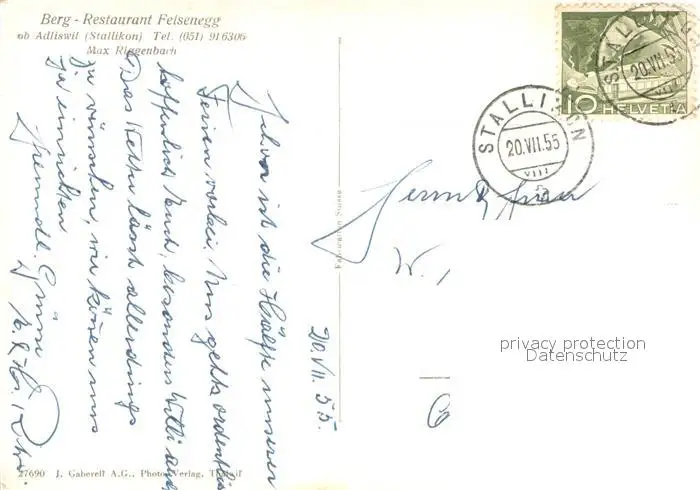 Berg - Restaurant Felsenegg
ob Adliswil (Stallikon) Tel. (051) 916306
Max Riggenbach
HELVETIA
10
STALLIKON
20.VII.55
VIII
STALLIKON
20.VII.55
VIII
20.VII.55.
Schon ist die Hälfte unserer
Ferien vorbei. Uns geht's ordentlich
hoffentlich Euch, besonders Willi auch
Das Wetter lässt allerdings
zu wünschen, wir können uns
ja einrichten
Freundl. Grüsse
Herrn & Frau
W.
Photo-Verlag Suisse
privacy protection
Datenschutz
27690 J. Gaberell A.G., Photo-Verlag, Thalwil